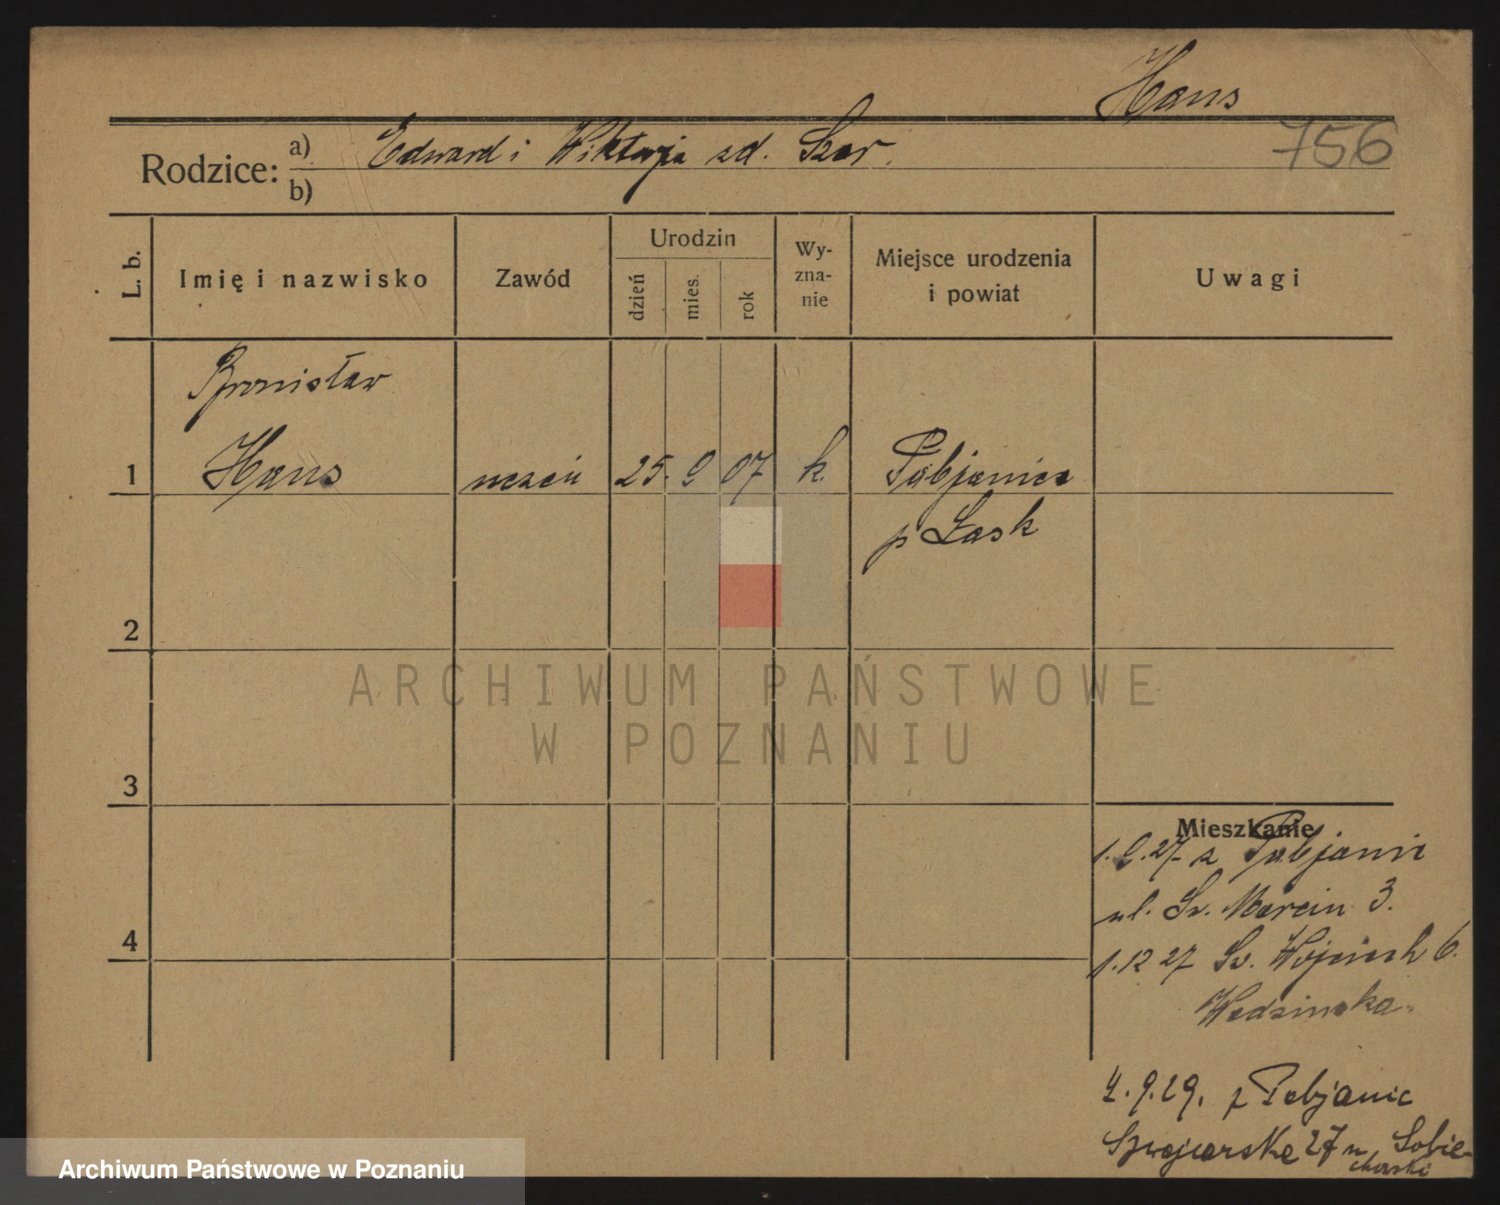 Hans
756
Rodzice: a) Edward i Wiktorja zd. Szer.
b)
L. b.
Imię i nazwisko
Zawód
Urodzin
dzień
mies.
rok
Wy-
zna-
nie
Miejsce urodzenia
i powiat
Uwagi
Bronisław
1 Hans uczeń 25. 9 07 k. Pabjanice
p Łask
2
3
4
ARCHIWUM PAŃSTWOWE
W POZNANIU
Mieszkanie
1.9.27 z Pabjanic
ul. Św. Marcin 3.
1.12 27 Św. Wojciech 6.
4.9.29. z Pabjanic
Szwajcarska 27 u Sobie-
Archiwum Państwowe w Poznaniu